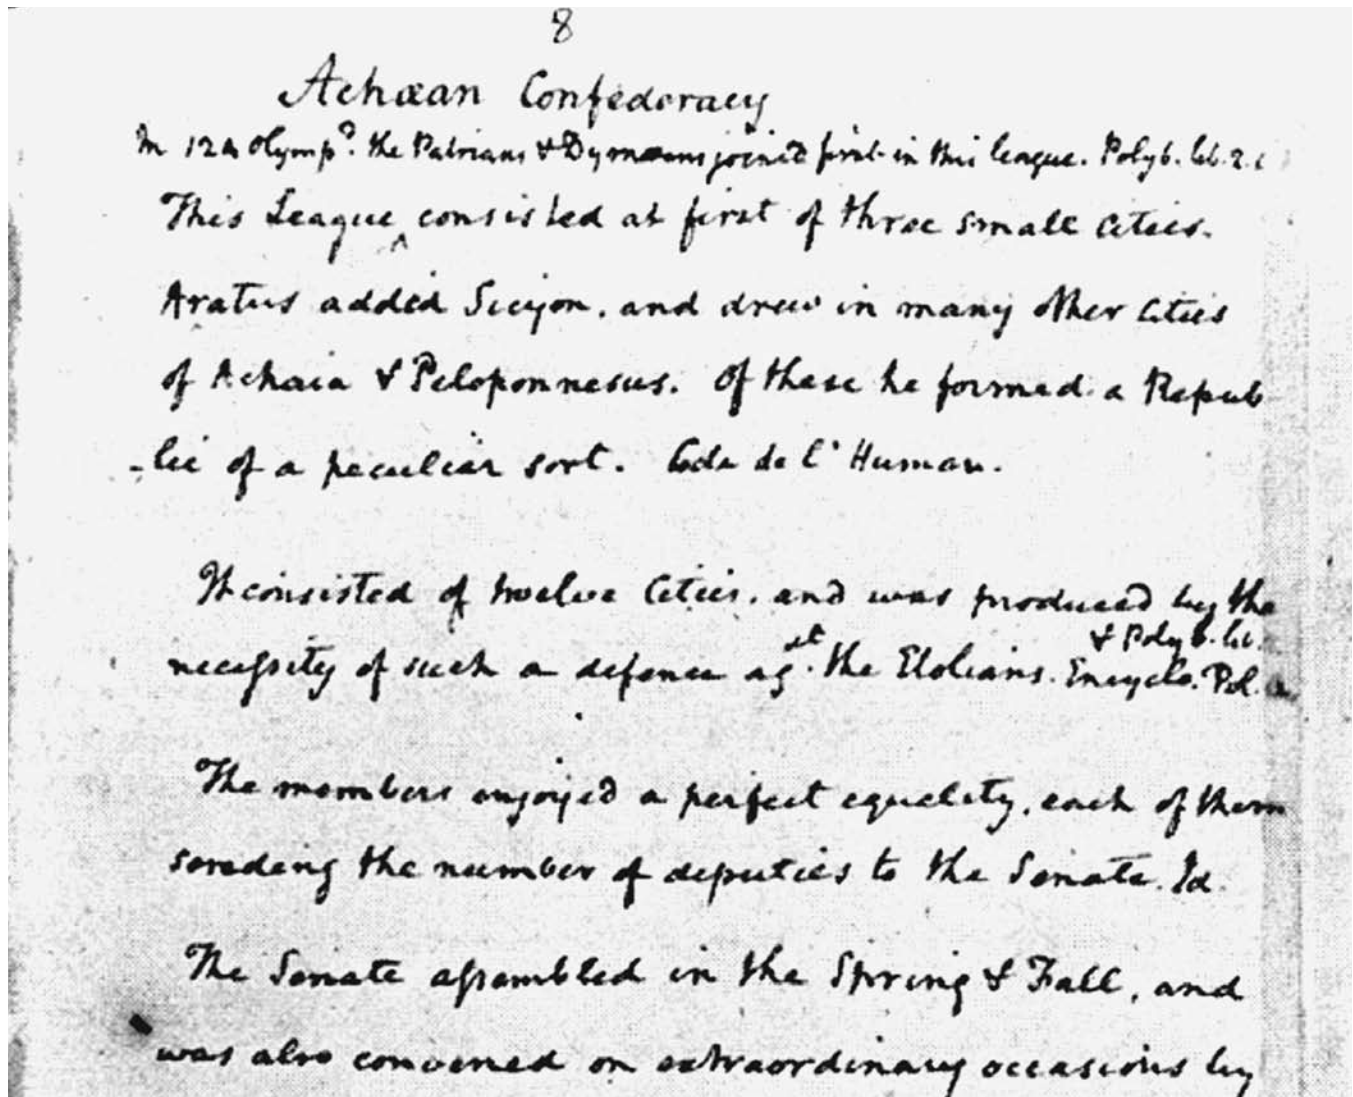 8
Achæan Confederacy
In 124 Olympd. the Patrians & Dymæans joined first in this league. Polyb. lib. 2. c
This League ^ consisted at first of three small Cities.
Aratus added Sicyon, and drew in many other Cities
of Achaia & Peloponnesus. Of these he formed a Repub
-lic of a peculiar sort. Code de l'Human.
It consisted of twelve Cities, and was produced by the
& Polyb. lib.
necessity of such a defence agst. the Etolians. Encyclo. Pol.
The members enjoyed a perfect equality, each of them
sending the number of deputies to the Senate. Id.
The Senate assembled in the Spring & Fall, and
was also convened on extraordinary occasions by